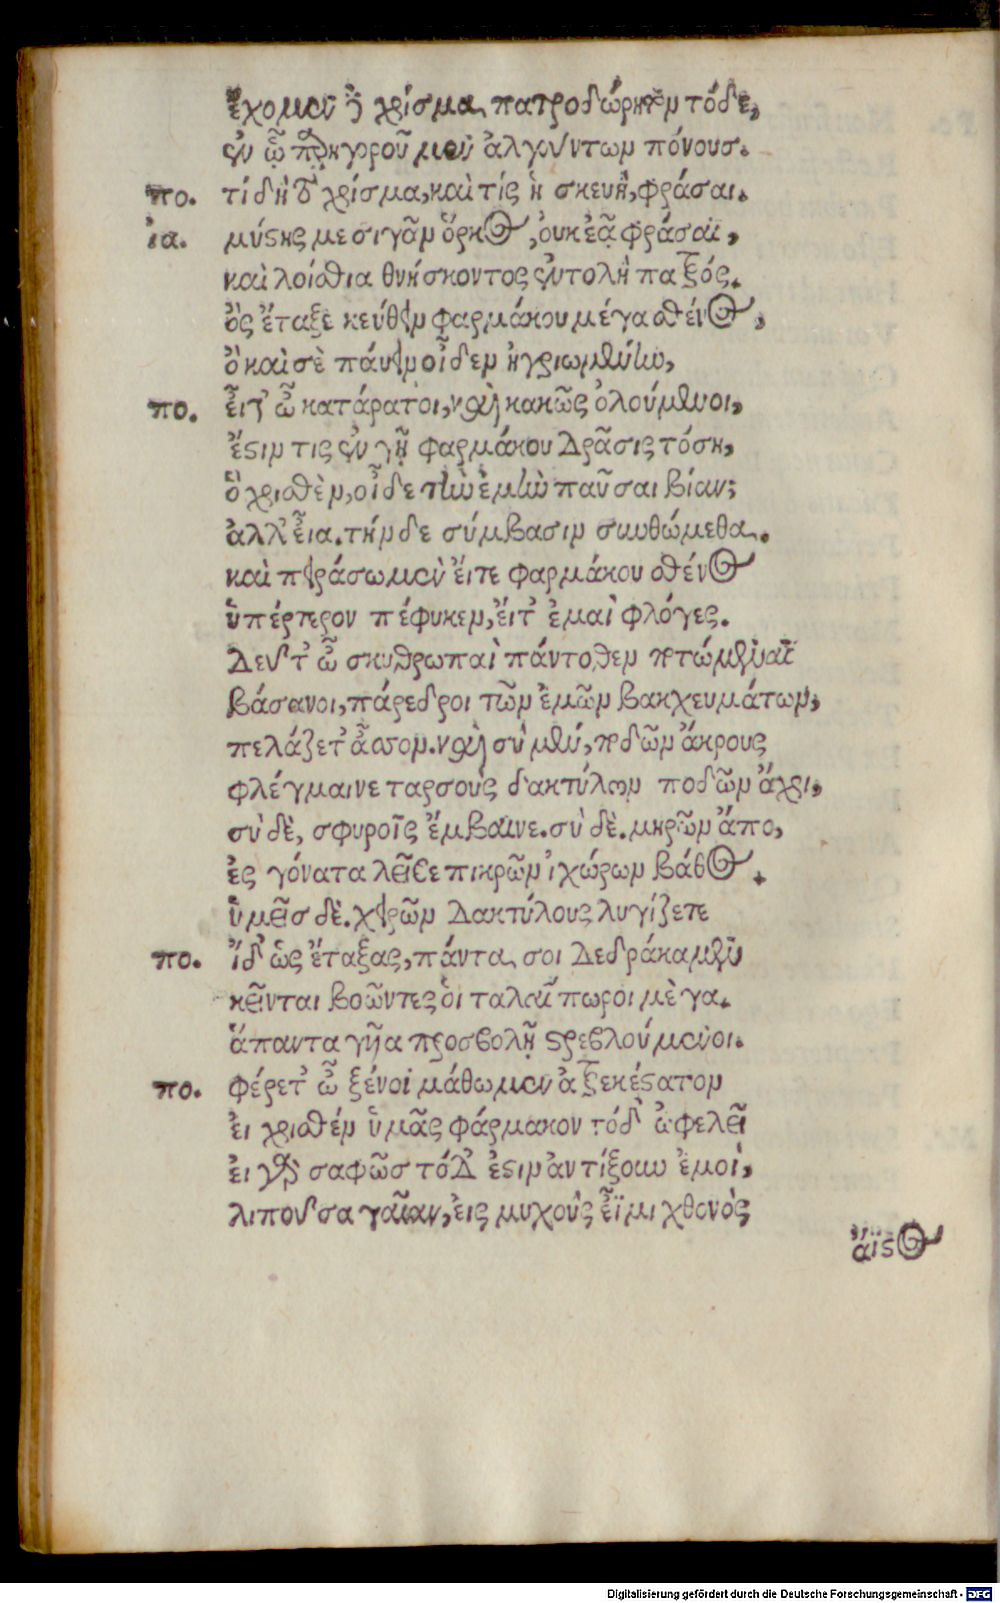 ἔχομεν δὲ χρίσμα πατροδώρητον τόδε,
ἐν ᾧ παρηγοροῦμεν ἀλγούντων πόνους.
πο. τί δὴ τὸ χρίσμα, καὶ τίς ἡ σκευὴ, φράσαι.
ἰα. μύστης με σιγᾶν ὅρκος, ὀυκ ἐᾷ φράσαι,
καὶ λοίσθια θνήσκοντος ἐντολὴ πατρός.
ὃς ἔταξε κεύθειν φαρμάκου μέγα σθένος,
ὃ καὶ σὲ πάυειν οἶδεν ἠγριωμένην,
πο. εἶτ' ὦ κατάρατοι, καὶ κακῶς ὀλούμενοι,
ἔστιν τις ἐν γῇ φαρμάκου δρᾶσις τόση,
ὃ χρισθὲν, οἶδε τὴν ἐμὴν παῦσαι βίαν;
ἀλλ' εἶα. τήνδε σύμβασιν συνθώμεθα.
καὶ πειράσωμεν ἔιτε φαρμάκου σθένος
ὑπέρτερον πέφυκεν, ἔιτ' ἐμαὶ φλόγες.
Δεῦτ' ὦ σκυθρωπαὶ πάντοθεν τετώμεναι
βάσανοι, πάρεδροι τῶν ἐμῶν βακχευμάτων,
πελάζετ' ἆσσον. καὶ σὺ μὲν, ποδῶν ἄκρους
φλέγμαινε ταρσοὺς δακτύλων ποδῶν ἄχρι,
σὺ δὲ, σφυροῖς ἔμβαινε. σὺ δὲ. μηρῶν ἄπο,
ἐς γόνατα λεῖβε πικρῶν ἰχώρων βάθος.
ὑμεῖς δὲ. χειρῶν δακτύλους λυγίζετε
πο. ἴδ' ὡς ἔταξας, πάντα σοι δεδράκαμεν
κεῖνται βοῶντες ὁι ταλαίπωροι μὲγα.
ἅπαντα γῆα προσβολῇ στρεβλούμενοι.
πο. φέρετ' ὦ ξένοι μάθωμεν ἀτρεκέστατον
ἐι χρισθέν ὑμᾶς φάρμακον τόδ' ὠφελεῖ
ἐι γὰρ σαφῶς τόδ' ἐστιν ἀντίξουν ἐμοὶ,
λιποῦσα γαῖαν, ἐις μυχοὺς εἶϊμι χθονὸς
ἄϊστος